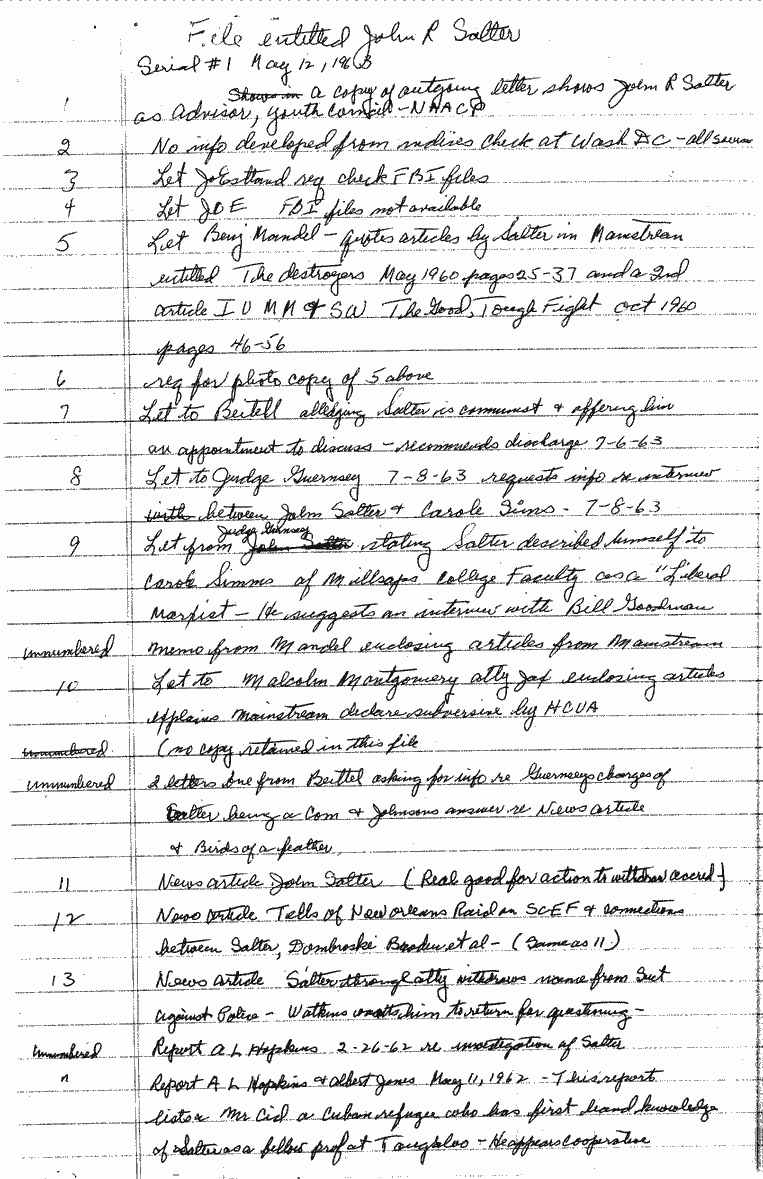 File entitled John R Salter
Serial #1 May 12, 1963
1 Shows in a copy of outgoing letter shows John R Salter
as Advisor, Youth Council - NAACP
2 No info developed from indices check at Wash DC - all
3 Let JoEstland req check FBI files
4 Let JOE FBI files not available
5 Let Benj Mandel - quotes articles by Salter in Mainstream
entitled The destroyers May 1960 pages 25-37 and a 2nd
article I U M M & SW The Good, Tough Fight Oct 1960
pages 46-56
6 req for photo copy of 5 above
7 Let to Beitell alledging Salter is communist & offering him
an appointment to discuss - recommends discharge 7-6-63
8 Let to Judge Guernsey 7-8-63 requests info re interview
with between John Salter & Carole Sims - 7-8-63
Judge Guernsey
9 Let from John Salter stating Salter described himself to
Carole Simms of Millsaps College Faculty as a "Liberal
Marxist - He suggests an interview with Bill Goodman
unnumbered memo from Mandel enclosing articles from Mainstream
10 Let to Malcolm Montgomery atty Jax enclosing articles
explains Mainstream declare subversive by HCUA
unnumbered (no copy retained in this file
unnumbered 2 letters one from Beittel asking for info re Guernseys charges of
Salter being a Com & Johnsons answer re News article
& Birds of a feather
11 News article John Salter (Real good for action to withdraw accred)
12 News Article Tells of New Orleans Raid on SCEF & connections
between Salter, Dombroski Braden et al - (Same as 11)
13 News Article Salter through atty withdraws name from Suit
against Police - Watkins wants him to return for questioning -
unnumbered Report A L Hopkins 2-26-62 re investigation of Salter
" Report A L Hopkins & Albert Jones May 11, 1962 - This report
lists a Mr Cid a Cuban refugee who has first hand knowledge
of Salter as a fellow prof at Tougaloo - He appears cooperative